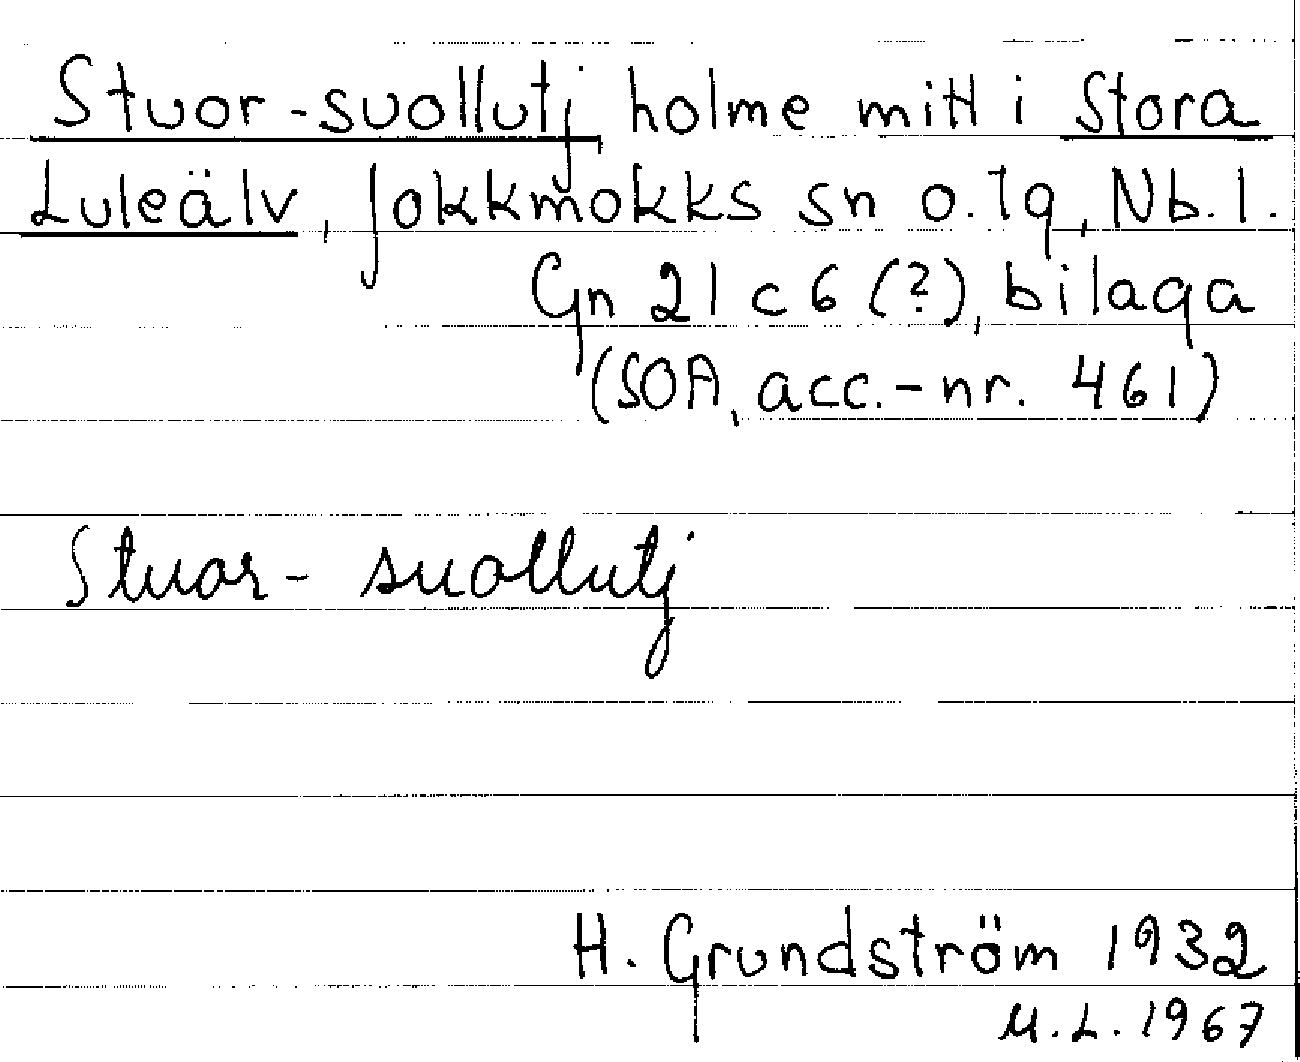 Stuor-suollutj, holme mitt i Stora
Luleälv, Jokkmokks sn o. lg, Nb. l.
Gn 21 c 6 (?), bilaga
(SOA, acc.-nr. 461)
Stuor- suollutj
H. Grundström 1932
M.L. 1967